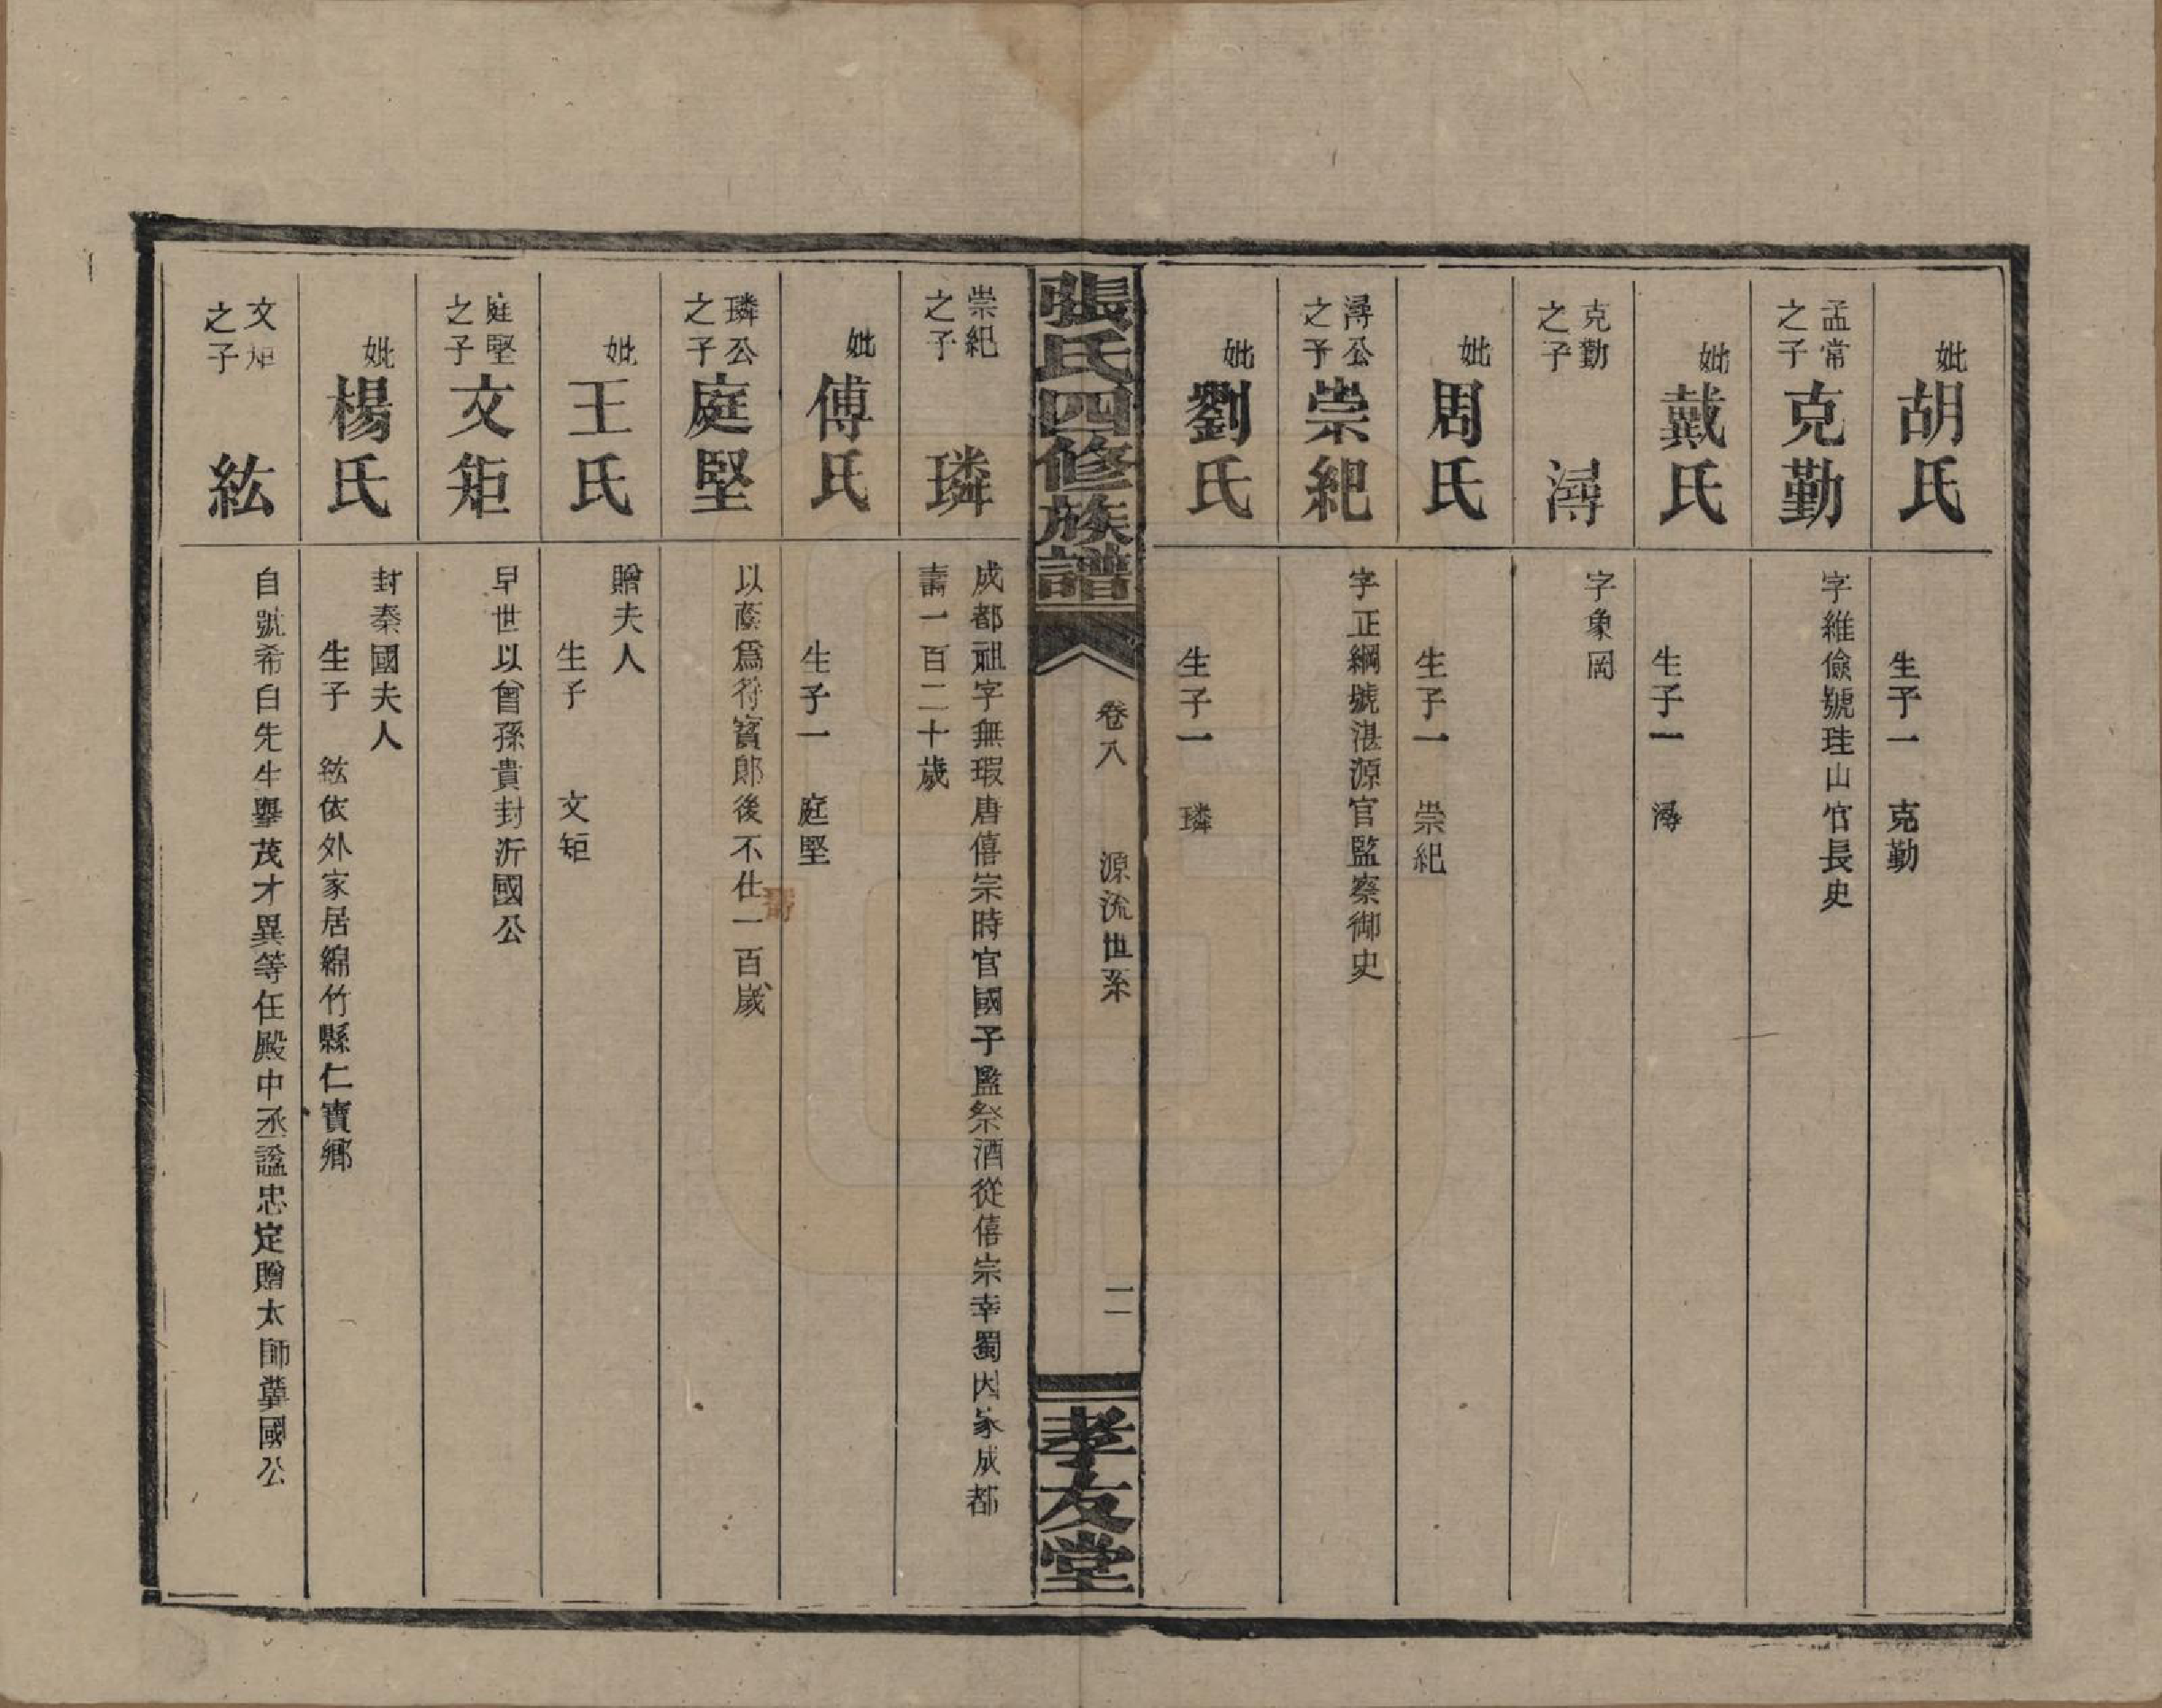 妣胡氏
生子一　克勤
孟常之子
克勤
字維儉號珪山官長史
妣戴氏
生子一　潯
克勤之子
潯
字象岡
妣周氏
生子一　崇紀
潯公之子
崇紀
字正綱號湛源官監察御史
妣劉氏
生子一　璘
張氏四修族譜
卷八　源流世系
二
孝友堂
崇紀之子
璘
成都祖字無瑕唐僖宗時官國子監祭酒從僖宗幸蜀因家成都
壽一百二十歲
妣傅氏
生子一　庭堅
璘公之子
庭堅
以蔭爲符寳郎後不仕一百歲
壽
妣王氏
贈夫人
生子　文矩
庭堅之子
文矩
早世以曾孫貴封沂國公
妣楊氏
封秦國夫人
生子　紘依外家居綿竹縣仁寶鄉
文矩之子
紘
自號希白先生舉茂才異等任殿中丞謚忠定贈太師冀國公